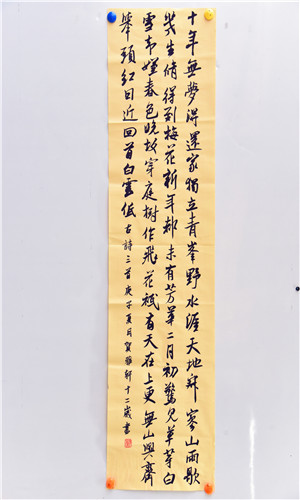 十年無夢得還家獨立青峯野水涯天地寂寥山雨歇
幾生脩得到梅花新年都未有芳華二月初驚見草芽白
雪却嫌春色晚故穿庭樹作飛花祇有天在上更無山與齊
舉頭紅日近回首白雲低 古詩三首庚子夏月賀 十二歲書